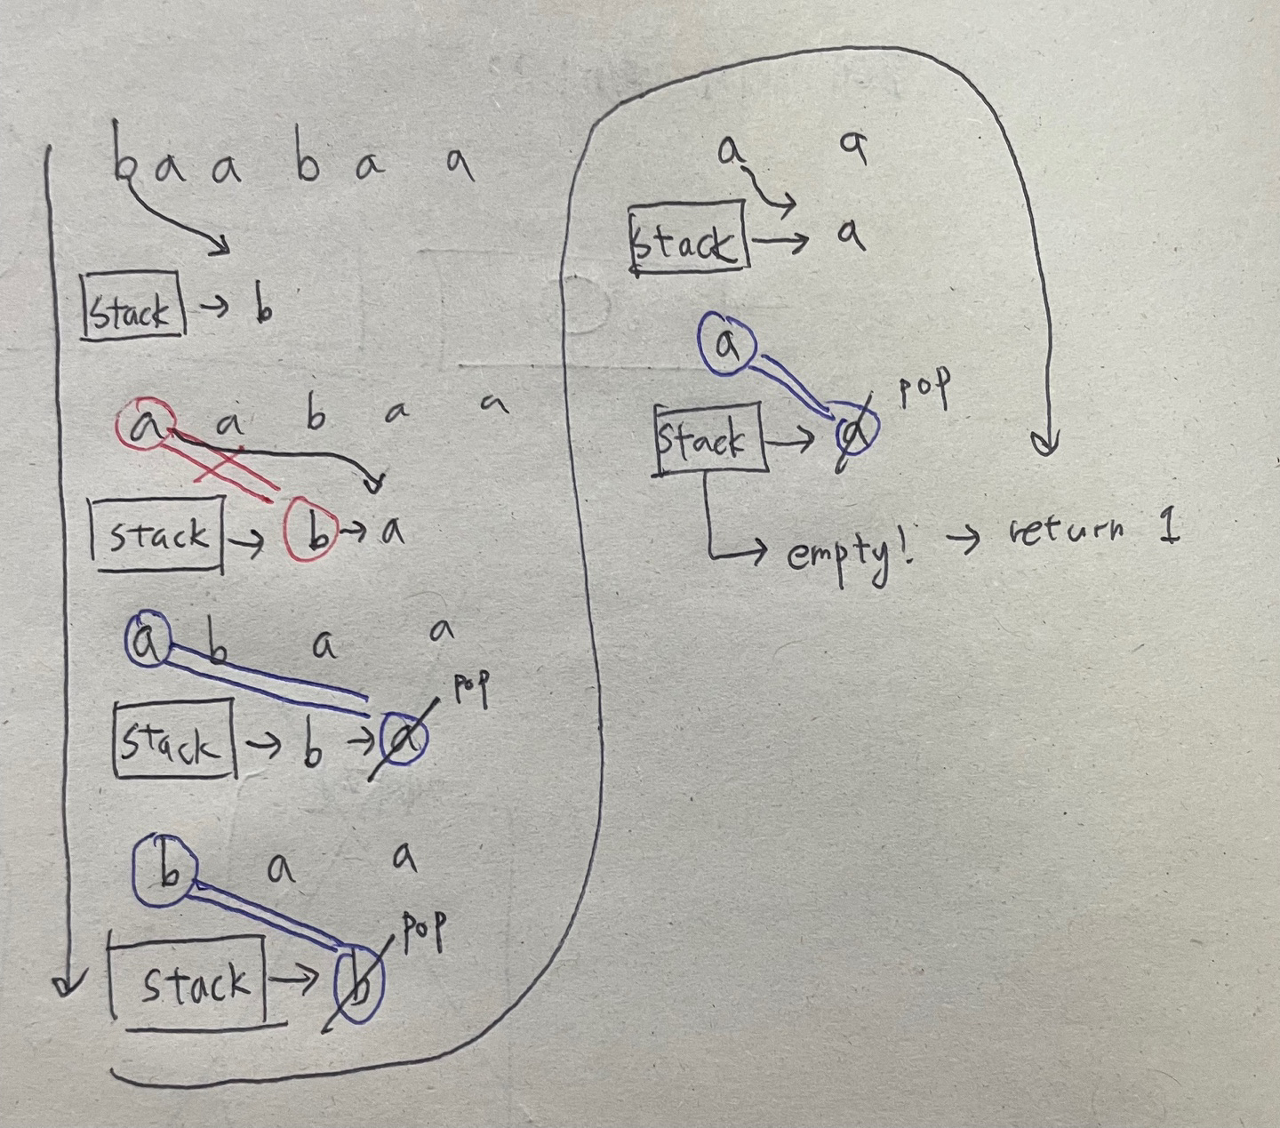 b a a b a a
stack → b
a a b a a
stack → b → a
a b a a
pop
stack → b → a
b a a
pop
stack → b
a a
stack → a
a
pop
stack → a
empty! → return 1